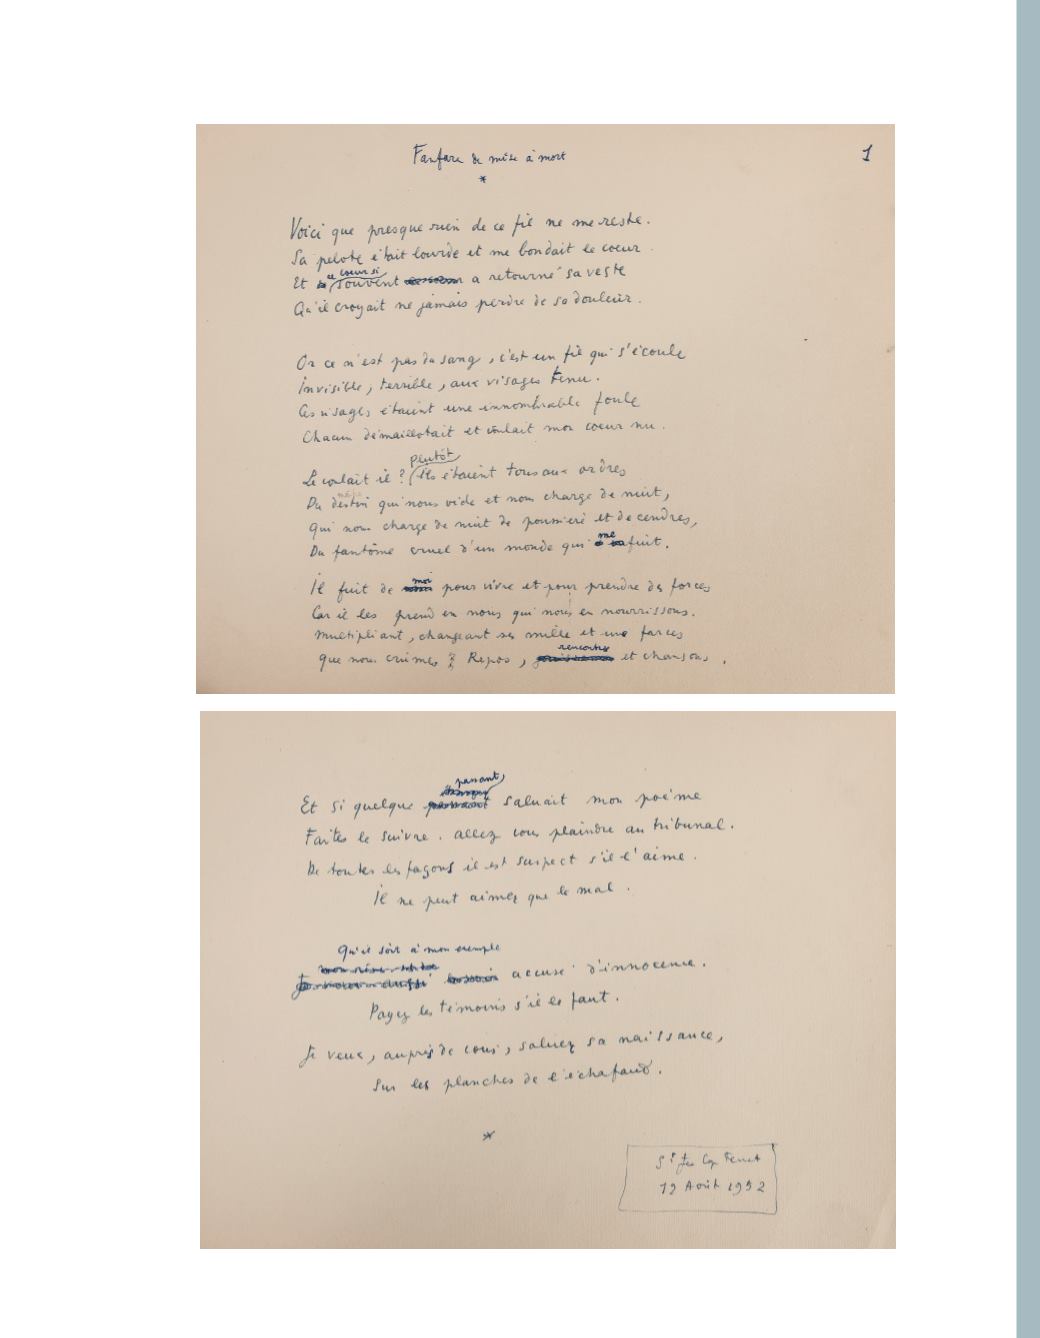 Fanfare de mise à mort
1
*
Voici que presque rien de ce fil ne me reste.
Sa pelote était lourde et me bondait le coeur.
ce coeur si
Et souvent a retourné sa veste
Qu'il croyait ne jamais perdre de sa douleur.
Or ce n'est pas du sang, c'est un fil qui s'écoule
Invisible, terrible, aux visages tenu.
Ces visages étaient une innombrable foule
Chacun démaillotait et voulait mon coeur nu.
plutôt
Le voulait il ? Ils étaient tous aux ordres
Du destin qui nous vide et nous charge de nuit,
Qui nous charge de nuit de poussière et de cendres,
me
Du fantôme cruel d'un monde qui fuit.
moi
Il fuit de pour vivre et pour prendre des forces
Car il les prend en nous qui nous en nourrissons.
Multipliant, changeant ses mille et une farces
rencontres
Que nous crûmes Repos, et chansons.
passant,
Et si quelque saluait mon poème
Faites le suivre. Allez vous plaindre au tribunal.
De toutes les façons il est suspect s'il l'aime.
Il ne peut aimer que le mal.
Qu'il soit à mon exemple
accusé d'innocence.
Payez les témoins s'il le faut.
Je veux, auprès de vous, saluer sa naissance,
Sur les planches de l'échafaud.
*
St Jean Cap Ferrat
19 Août 1952